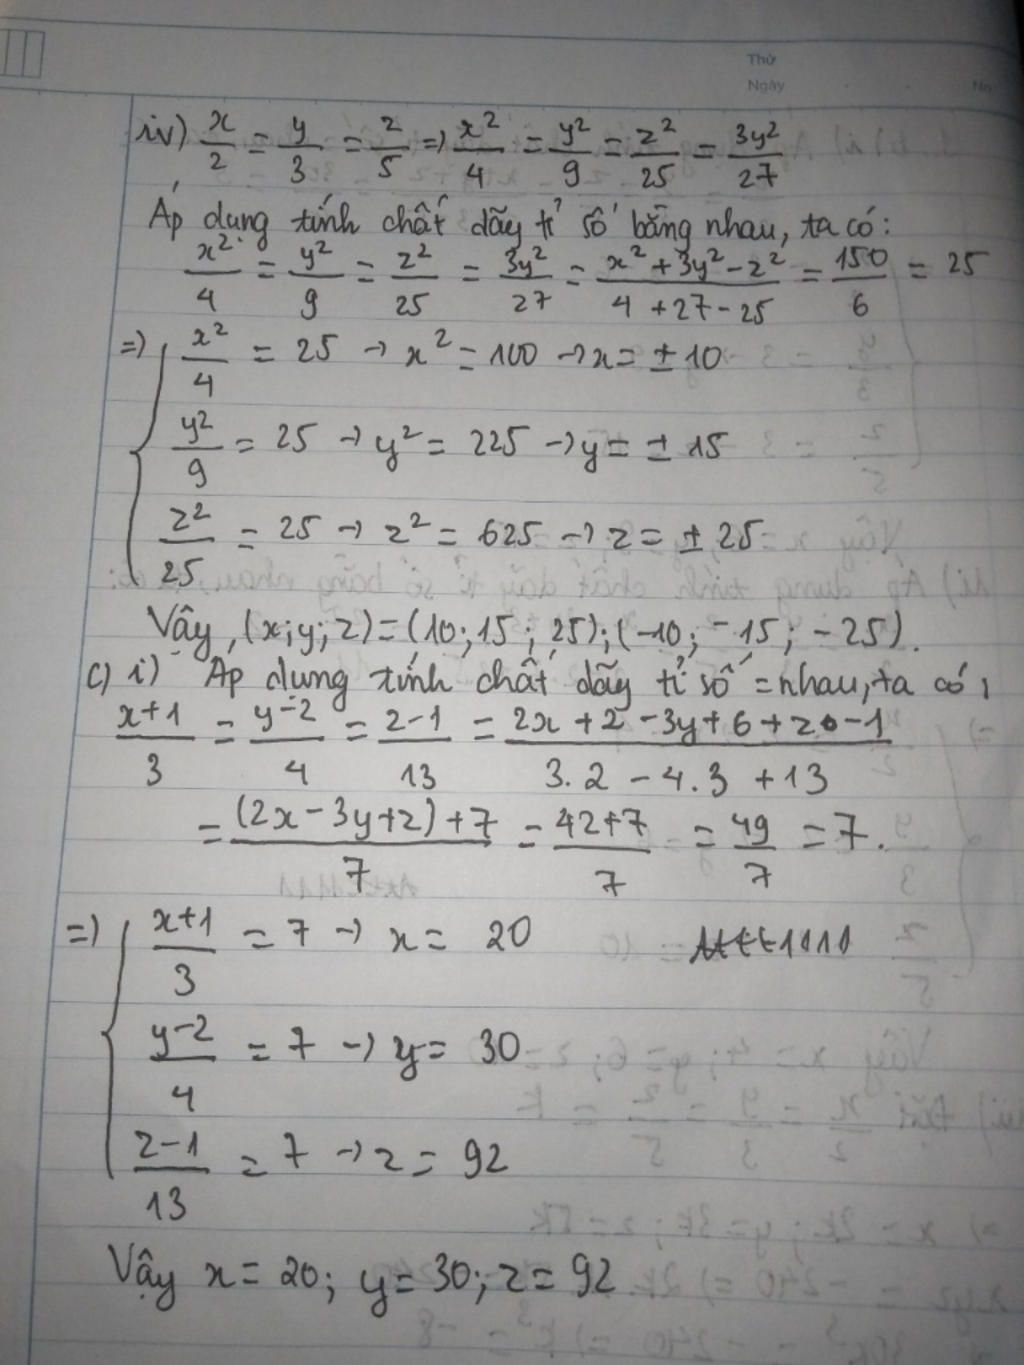 Thứ
Ngày
No
iv) x/2 = y/3 = z/5 => x²/4 = y²/9 = z²/25 = 3y²/27
Áp dụng tính chất dãy tỉ số bằng nhau, ta có:
x²/4 = y²/9 = z²/25 = 3y²/27 = (x² + 3y² - z²)/(4 + 27 - 25) = 150/6 = 25
=> { x²/4 = 25 → x² = 100 → x = ± 10
y²/9 = 25 → y² = 225 → y = ± 15
z²/25 = 25 → z² = 625 → z = ± 25
Vậy (x; y; z) = (10; 15; 25); (-10; -15; -25).
c) i) Áp dụng tính chất dãy tỉ số = nhau, ta có:
(x+1)/3 = (y-2)/4 = (z-1)/13 = (2x + 2 - 3y + 6 + z - 1)/(3.2 - 4.3 + 13)
= ((2x - 3y + z) + 7)/7 = (42+7)/7 = 49/7 = 7.
=> { (x+1)/3 = 7 → x = 20
(y-2)/4 = 7 → y = 30
(z-1)/13 = 7 → z = 92
Vậy x = 20; y = 30; z = 92